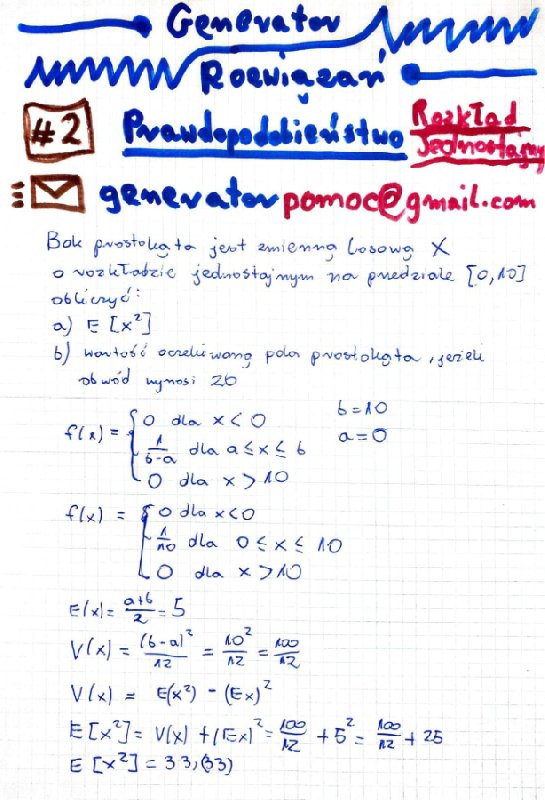 Generator
Rozwiązań
#2 Prawdopodobieństwo Rozkład
Jednostajny
generatorpomoc@gmail.com
Bok prostokąta jest zmienną losową X
o rozkładzie jednostajnym na przedziale [0,10]
obliczyć:
a) E[x²]
b) wartość oczekiwaną pola prostokąta, jeżeli
obwód wynosi 20
f(x) = { 0 dla x < 0
1/(b-a) dla a ≤ x ≤ b
0 dla x > 10
b = 10
a = 0
f(x) = { 0 dla x < 0
1/10 dla 0 ≤ x ≤ 10
0 dla x > 10
E(x) = (a+b)/2 = 5
V(x) = (b-a)²/12 = 10²/12 = 100/12
V(x) = E(x²) - (Ex)²
E[x²] = V(x) + (Ex)² = 100/12 + 5² = 100/12 + 25
E[x²] = 33,(33)